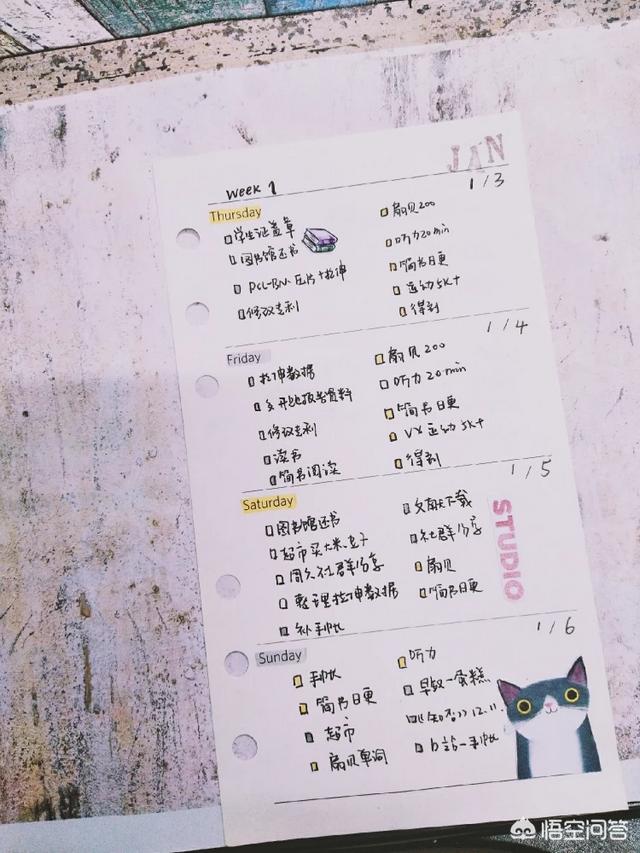 JAN
Week 1
1/3
Thursday
学生证盖章
图书馆还书
PCL-BN 压片+拉伸
修改专利
扇贝200
听力20min
简书日更
运动5K+
得到
1/4
Friday
拉伸数据
修改专利
读书
简书阅读
扇贝200
听力20min
简书日更
VX运动5K+
得到
1/5
Saturday
图书馆还书
超市买大米、
社群分享
整理拉伸数据
补手帐
文献下载
社群分享
扇贝
简书日更
STUDIO
1/6
Sunday
手帐
简书日更
超市
扇贝单词
听力
早餐一蛋糕
12.11
b站一手帐
悟空问答